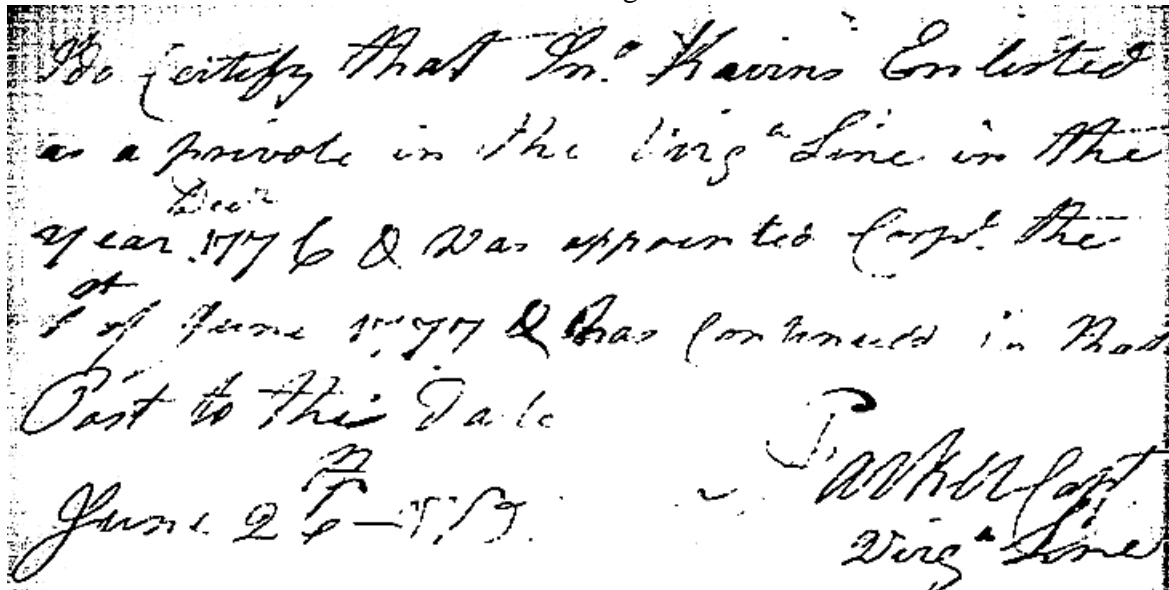 I do Certify that Jn.º Kavins Enlisted
as a private in the Virgª Line in the
Decr
year 1776 & was appointed Corpl. the
1st of June 1777 & has Continued in that
Post to this Date
June 26th
T. Parker Capt
Virgª Line